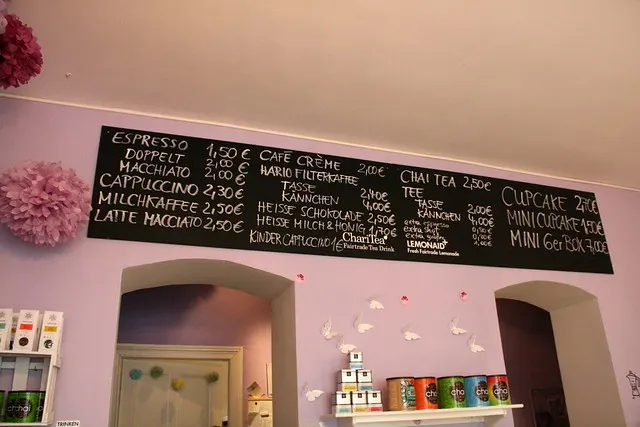 ESPRESSO 1,50€
DOPPELT 2,00€
MACCHIATO 2,00€
CAPPUCCINO 2,30€
MILCHKAFFEE 2,50€
LATTE MACCIATO 2,50€
CAFÉ CRÈME 2,00€
HARIO FILTERKAFFEE
TASSE 2,40€
KÄNNCHEN 4,00€
HEISSE SCHOKOLADE 2,50€
HEISSE MILCH & HONIG 1,70€
KINDERCAPPUCINO 1€
ChariTea
Fairtrade Tea Drink
CHAI TEA 2,50€
TEE
TASSE 2,00€
KÄNNCHEN 4,00€
extra espresso
extra
extra
LEMONAID
Fresh Fairtrade Lemonade
CUPCAKE 2,70€
MINI CUPCAKE 1,50€
MINI 6er BOX 7,00€
TRINKEN